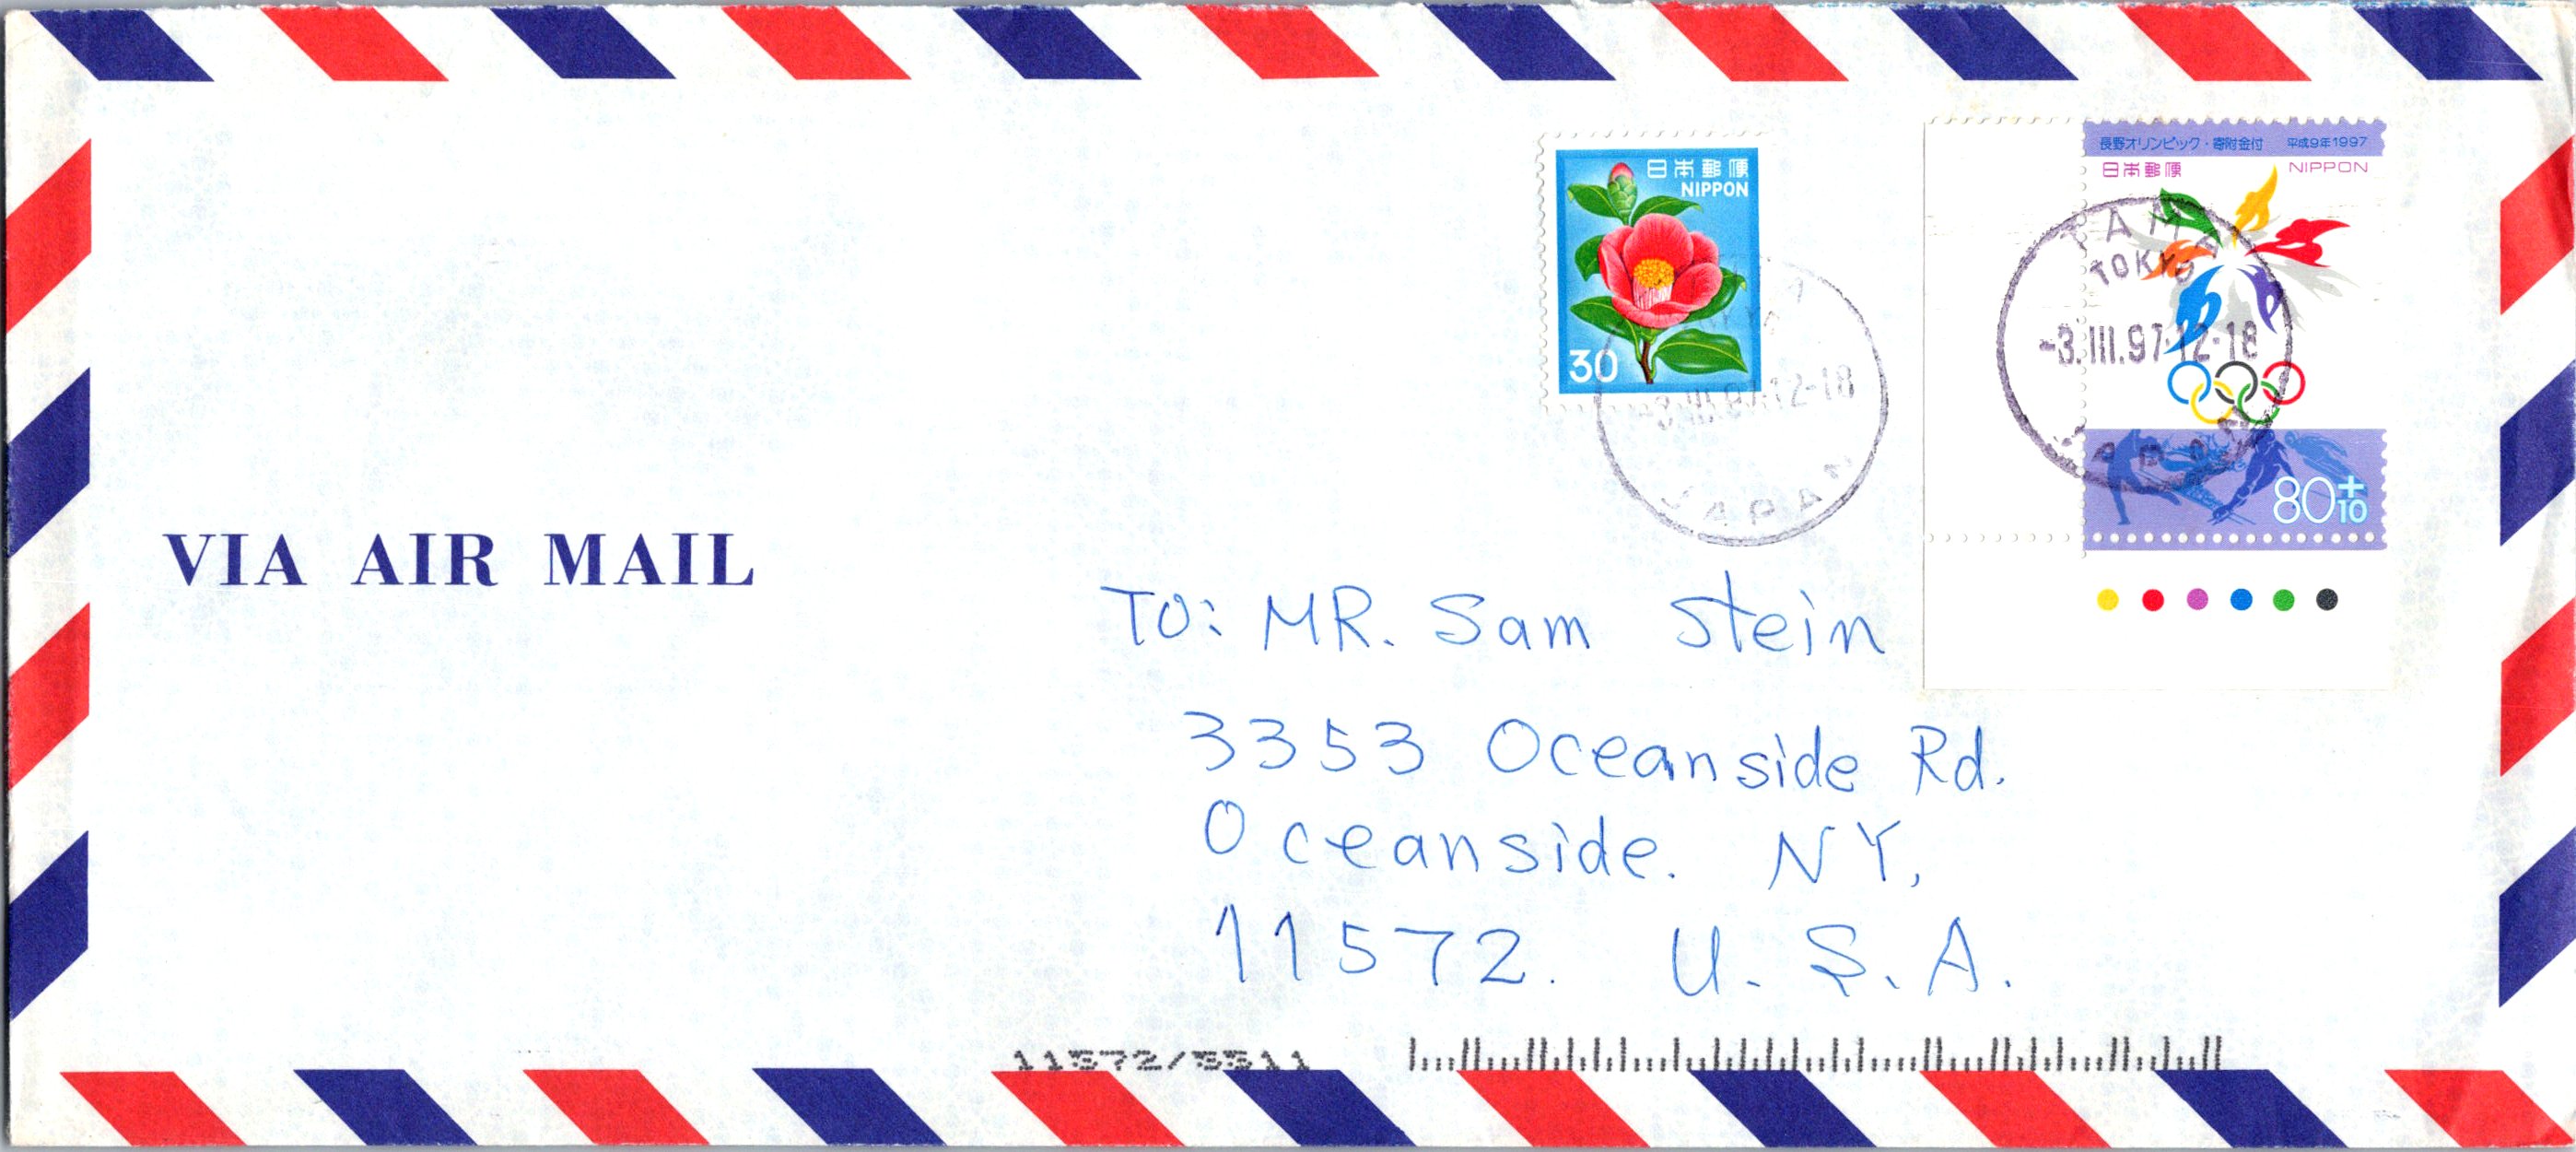 長野オリンピック・寄附金付 平成9年1997
日本郵便 NIPPON
日本郵便
NIPPON
30
TAMA
TOKYO
-3.III.97.12-18
JAPAN
80+10
-3.III.97.12-18
JAPAN
VIA AIR MAIL
TO: MR. Sam Stein
3353 Oceanside Rd.
Oceanside. NY,
11572. U.S.A.
11572/3311